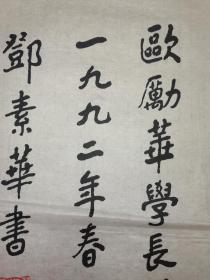 歐勵華學長
一九九二年春
鄧素華書